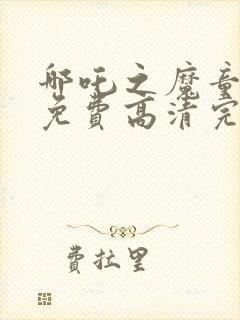 哪吒之魔童
免費高清完
費拉里